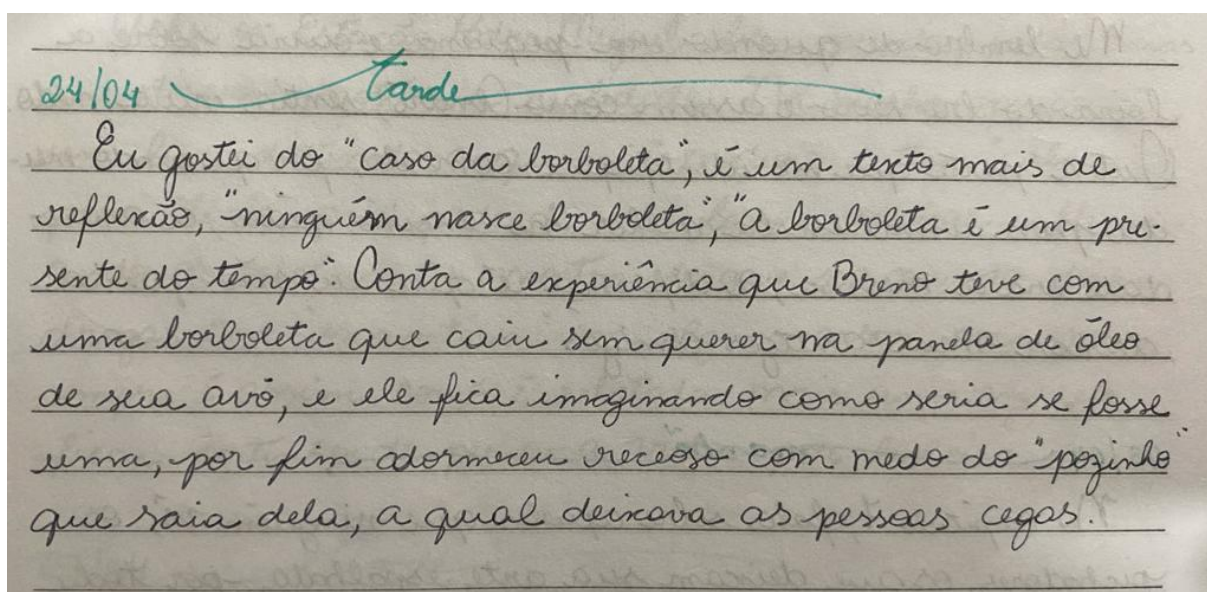 24/04 Tarde
Eu gostei do "caso da borboleta", é um texto mais de
reflexão, "ninguém nasce borboleta", "a borboleta é um pre-
sente do tempo". Conta a experiência que Breno teve com
uma borboleta que caiu sem querer na panela de óleo
de sua avó, e ele fica imaginando como seria se fosse
uma, por fim adormeceu receoso com medo do "pozinho"
que saia dela, a qual deixava as pessoas cegas.